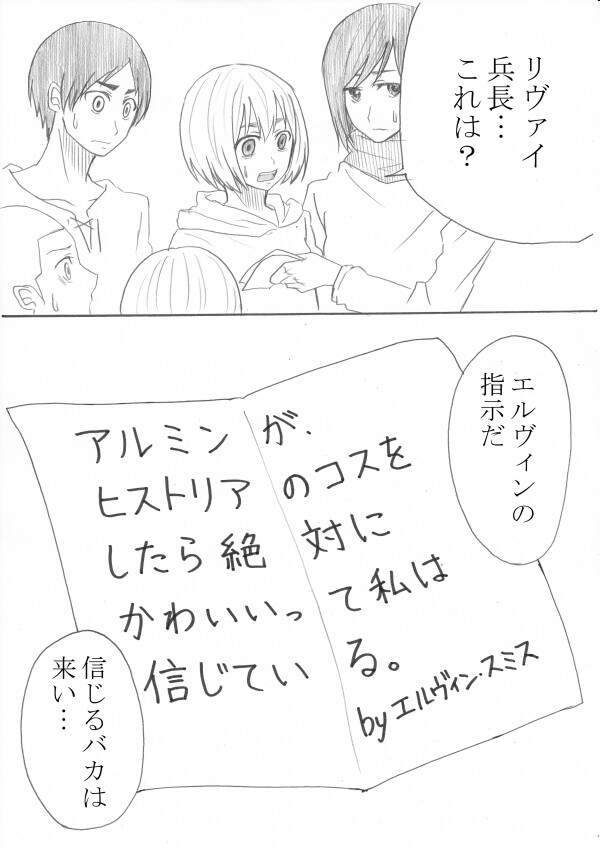 リヴァイ
兵長…
これは？
エルヴィンの
指示だ
アルミンが、
ヒストリアのコスを
したら絶対に
かわいいって私は
信じている。
byエルヴィン・スミス
信じるバカは
来い…